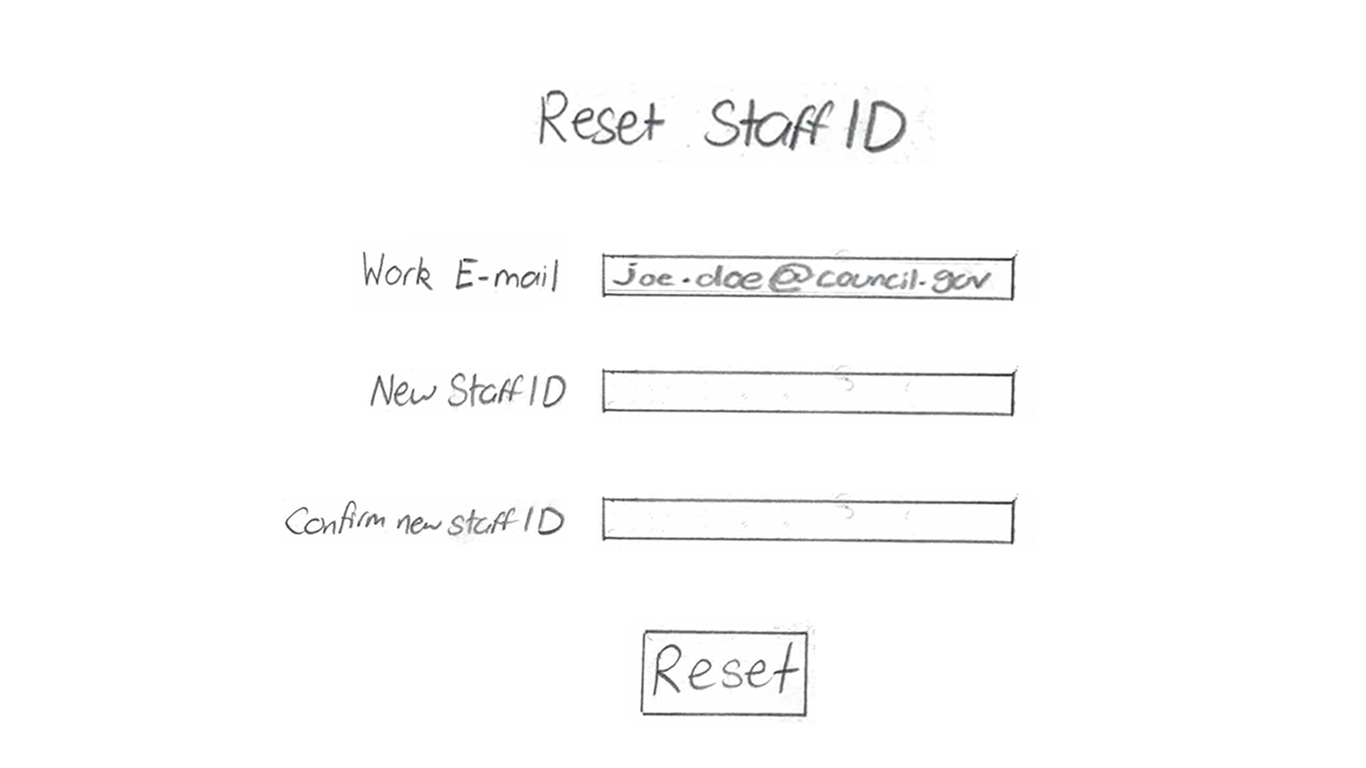 Reset Staff ID
Work E-mail joe.doe@council.gov
New Staff ID
Confirm new staff ID
Reset